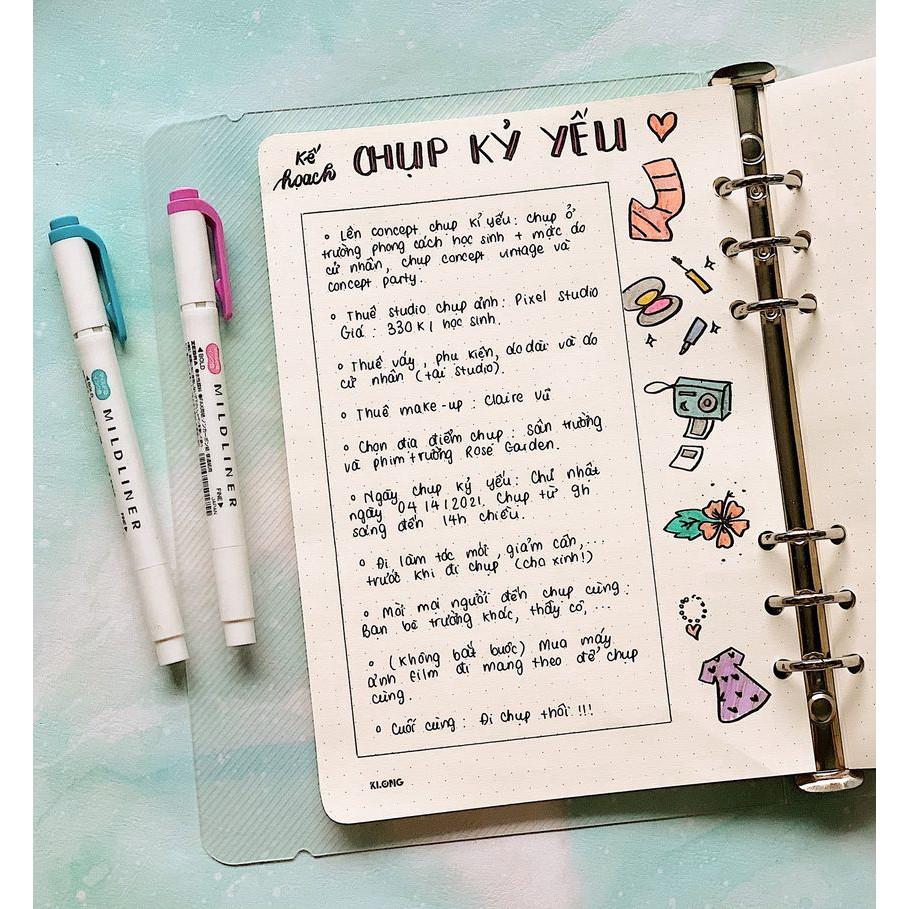 Kế hoạch
CHỤP KỶ YẾU
• Lên concept chụp kỉ yếu: chụp ở
trường phong cách học sinh + mặc áo
cử nhân, chụp concept vintage và
concept party.
• Thuê studio chụp ảnh: Pixel Studio
Giá: 330K/học sinh.
• Thuê váy, phụ kiện, áo dài và áo
cử nhân (tại studio).
• Thuê make-up: Claire Vũ
• Chọn địa điểm chụp: Sân trường
và phim trường Rose Garden.
• Ngày chụp kỷ yếu: Chủ nhất
ngày 04/4/2021. Chụp từ 9h
sáng đến 14h chiều.
• Đi làm tóc mới, giảm cân,...
trước khi đi chụp (cho xinh!)
• Mời mọi người đến chụp cùng.
Bạn bè trường khác, thầy cô, ...
• (Không bắt buộc) Mua máy
ảnh film để mang theo để chụp
cùng.
• Cuối cùng: Đi chụp thôi!!!
KLONG
MILDLINER
BOLD
ZEBRA
FINE
JAPAN
MILDLINER
FINE